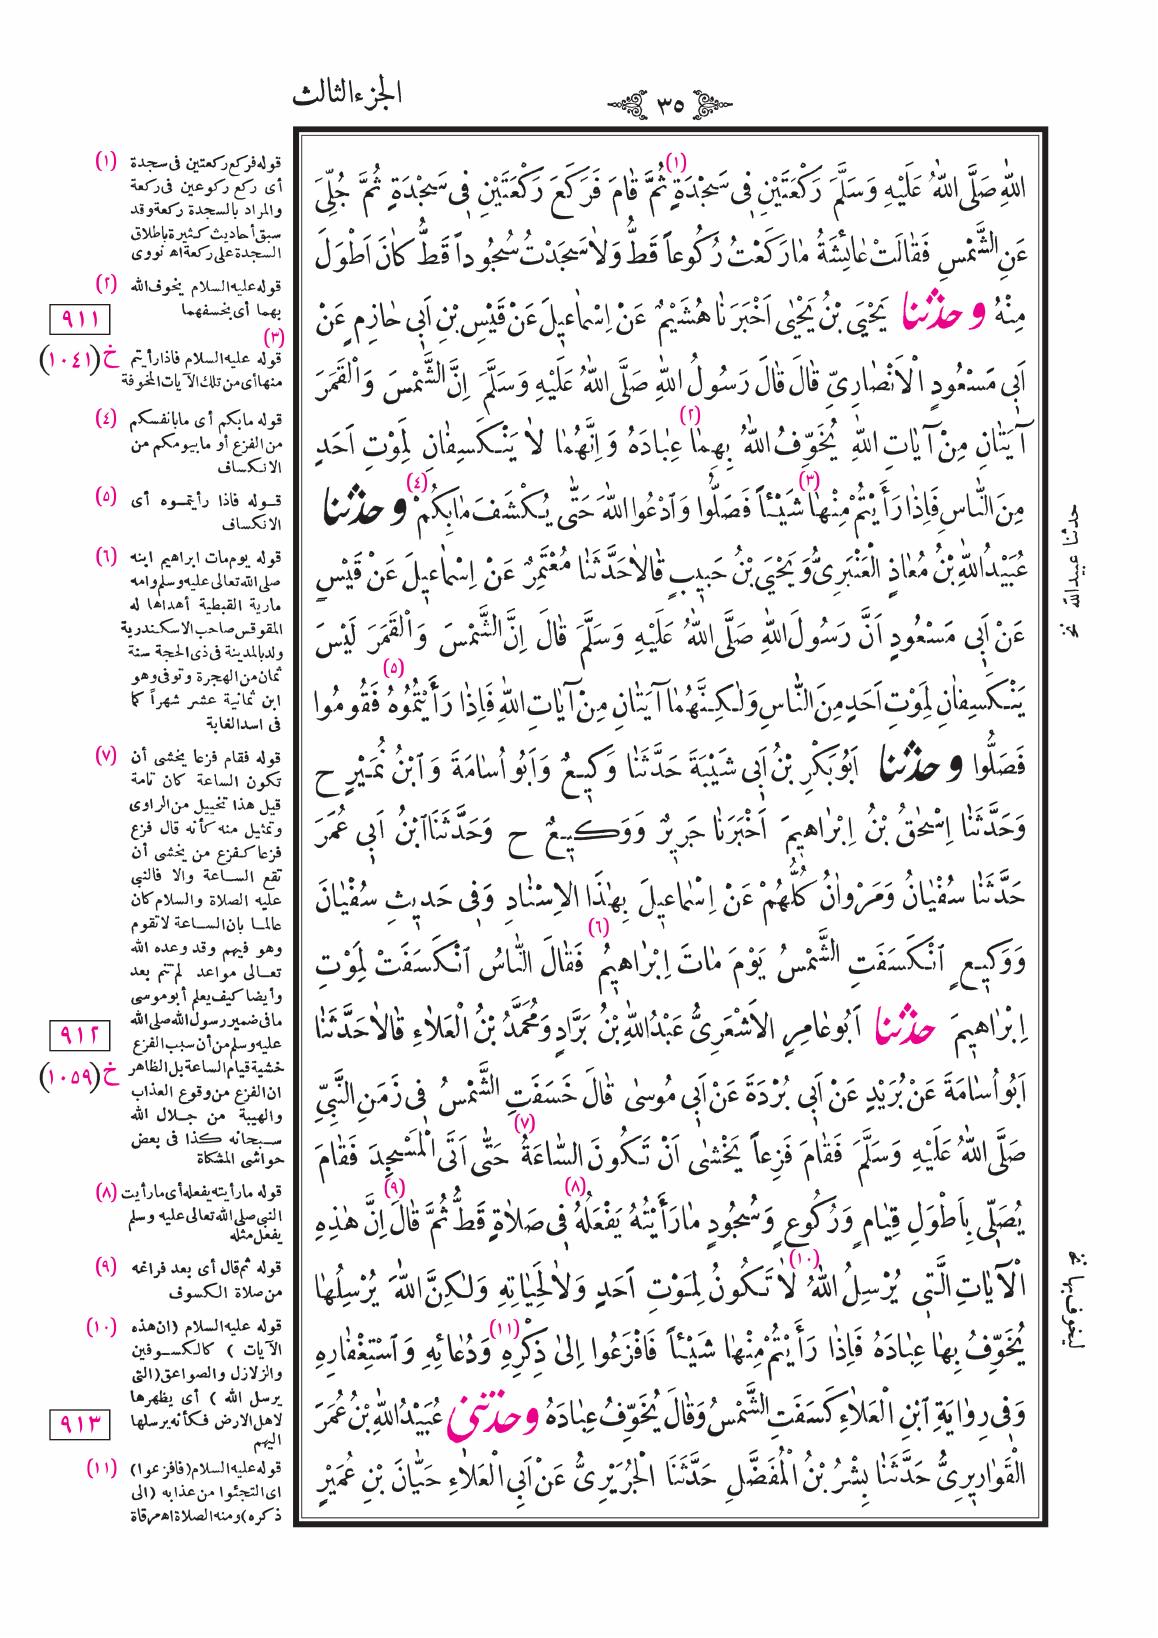 الجزء الثالث
٣٥
اللّٰهِ صَلَّى اللّٰهُ عَلَيْهِ وَسَلَّمَ رَكْعَتَيْنِ فِى سَجْدَةٍ (١) ثُمَّ قَامَ فَرَكَعَ رَكْعَتَيْنِ فِى سَجْدَةٍ ثُمَّ جُلِّىَ
عَنِ الشَّمْسِ فَقَالَتْ عَائِشَةُ مَا رَكَعْتُ رُكُوعاً قَطُّ وَلَا سَجَدْتُ سُجُوداً قَطُّ كَانَ اَطْوَلَ
مِنْهُ وحدثنا يَحْيَى بْنُ يَحْيٰى اَخْبَرَنَا هُشَيْمٌ عَنْ اِسْمَاعِيلَ عَنْ قَيْسِ بْنِ اَبِى حَازِمٍ عَنْ
اَبِى مَسْعُودٍ الْاَنْصَارِىِّ قَالَ قَالَ رَسُولُ اللّٰهِ صَلَّى اللّٰهُ عَلَيْهِ وَسَلَّمَ اِنَّ الشَّمْسَ وَالْقَمَرَ
آيَتَانِ مِنْ آيَاتِ اللّٰهِ يُخَوِّفُ اللّٰهُ بِهِمَا (٢) عِبَادَهُ وَاِنَّهُمَا لَا يَنْكَسِفَانِ لِمَوْتِ اَحَدٍ
مِنَ النَّاسِ فَاِذَا رَأَيْتُمْ مِنْهَا (٣) شَيْئاً فَصَلُّوا وَادْعُوا اللّٰهَ حَتّٰى يُكْشَفَ مَا بِكُمْ (٤) وحدثنا
عُبَيْدُ اللّٰهِ بْنُ مُعَاذٍ الْعَنْبَرِىُّ وَيَحْيَى بْنُ حَبِيبٍ قَالَا حَدَّثَنَا مُعْتَمِرٌ عَنْ اِسْمَاعِيلَ عَنْ قَيْسٍ
عَنْ اَبِى مَسْعُودٍ اَنَّ رَسُولَ اللّٰهِ صَلَّى اللّٰهُ عَلَيْهِ وَسَلَّمَ قَالَ اِنَّ الشَّمْسَ وَالْقَمَرَ لَيْسَ
يَنْكَسِفَانِ لِمَوْتِ اَحَدٍ مِنَ النَّاسِ وَلٰكِنَّهُمَا آيَتَانِ مِنْ آيَاتِ اللّٰهِ فَاِذَا رَأَيْتُمُوهُ (٥) فَقُومُوا
فَصَلُّوا وحدثنا اَبُو بَكْرِ بْنُ اَبِى شَيْبَةَ حَدَّثَنَا وَكِيعٌ وَاَبُو اُسَامَةَ وَابْنُ نُمَيْرٍ ح
وَحَدَّثَنَا اِسْحٰقُ بْنُ اِبْرَاهِيمَ اَخْبَرَنَا جَرِيرٌ وَوَكِيعٌ ح وَحَدَّثَنَا ابْنُ اَبِى عُمَرَ
حَدَّثَنَا سُفْيَانُ وَمَرْوَانُ كُلُّهُمْ عَنْ اِسْمَاعِيلَ بِهٰذَا الاِسْنَادِ وَفِى حَدِيثِ سُفْيَانَ
وَوَكِيعٍ انْكَسَفَتِ الشَّمْسُ يَوْمَ مَاتَ اِبْرَاهِيمُ (٦) فَقَالَ النَّاسُ انْكَسَفَتْ لِمَوْتِ
اِبْرَاهِيمَ حدثنا اَبُو عَامِرٍ الاَشْعَرِىُّ عَبْدُ اللّٰهِ بْنُ بَرَّادٍ وَمُحَمَّدُ بْنُ الْعَلَاءِ قَالَا حَدَّثَنَا
اَبُو اُسَامَةَ عَنْ بُرَيْدٍ عَنْ اَبِى بُرْدَةَ عَنْ اَبِى مُوسٰى قَالَ خَسَفَتِ الشَّمْسُ فِى زَمَنِ النَّبِىِّ
صَلَّى اللّٰهُ عَلَيْهِ وَسَلَّمَ فَقَامَ فَزِعاً يَخْشٰى اَنْ تَكُونَ السَّاعَةُ (٧) حَتّٰى اَتَى الْمَسْجِدَ فَقَامَ
يُصَلِّى بِاَطْوَلِ قِيَامٍ وَرُكُوعٍ وَسُجُودٍ مَا رَأَيْتُهُ يَفْعَلُهُ (٨) فِى صَلَاةٍ قَطُّ ثُمَّ قَالَ (٩) اِنَّ هٰذِهِ
الْآيَاتِ الَّتِى يُرْسِلُ اللّٰهُ (١٠) لَا تَكُونُ لِمَوْتِ اَحَدٍ وَلَا لِحَيَاتِهِ وَلٰكِنَّ اللّٰهَ يُرْسِلُهَا
يُخَوِّفُ بِهَا عِبَادَهُ فَاِذَا رَأَيْتُمْ مِنْهَا شَيْئاً فَافْزَعُوا اِلٰى ذِكْرِهِ (١١) وَدُعَائِهِ وَاسْتِغْفَارِهِ
وَفِى رِوَايَةِ ابْنِ الْعَلَاءِ كَسَفَتِ الشَّمْسُ وَقَالَ يُخَوِّفُ عِبَادَهُ وحدثنى عُبَيْدُ اللّٰهِ بْنُ عُمَرَ
الْقَوَارِيرِىُّ حَدَّثَنَا بِشْرُ بْنُ الْمُفَضَّلِ حَدَّثَنَا الْجُرَيْرِىُّ عَنْ اَبِى الْعَلَاءِ حَيَّانَ بْنِ عُمَيْرٍ
حدثنا عبيدالله نخ
ليخوف بها نخ
(١) قوله فركع ركعتين فى سجدة
أى ركع ركوعين فى ركعة
والمراد بالسجدة ركعة وقد
سبق أحاديث كثيرة باطلاق
السجدة على ركعة اه نووى
(٢) قوله عليه السلام يخوف الله
بهما أى بخسفهما
٩١١
(٣)
خ (١٠٤١)
قوله عليه السلام فاذا رأيتم
منها أى من تلك الآيات المخوفة
(٤) قوله ما بكم أى ما بانفسكم
من الفزع أو ما بيومكم من
الانكساف
(٥) قوله فاذا رأيتموه أى
الانكساف
(٦) قوله يوم مات ابراهيم ابنه
صلى الله تعالى عليه وسلم وامه
مارية القبطية أهداها له
المقوقس صاحب الاسكندرية
ولد بالمدينة فى ذى الحجة سنة
ثمان من الهجرة وتوفى وهو
ابن ثمانية عشر شهراً كما
فى اسد الغابة
(٧) قوله فقام فزعا يخشى أن
تكون الساعة كان تامة
قيل هذا تخييل من الراوى
وتمثيل منه كأنه قال فزع
فزعا كفزع من يخشى أن
تقع الساعة والا فالنبى
عليه الصلاة والسلام كان
عالما بان الساعة لا تقوم
وهو فيهم وقد وعده الله
تعالى مواعد لم تتم بعد
وأيضا كيف يعلم أبو موسى
ما فى ضمير رسول الله صلى الله
٩١٢
عليه وسلم من أن سبب الفزع
خشية قيام الساعة بل الظاهر
خ (١٠٥٩)
ان الفزع من وقوع العذاب
والهيبة من جلال الله
سبحانه كذا فى بعض
حواشى المشكاة
(٨) قوله ما رأيته يفعله أى ما رأيت
النبى صلى الله تعالى عليه وسلم
يفعل مثله
(٩) قوله ثم قال أى بعد فراغه
من صلاة الكسوف
(١٠) قوله عليه السلام (ان هذه
الآيات ) كالكسوفين
والزلازل والصواعق (التى
يرسل الله ) أى يظهرها
لاهل الارض فكأنه يرسلها
٩١٣
اليهم
(١١) قوله عليه السلام (فافزعوا)
اى التجئوا من عذابه (الى
ذكره) ومنه الصلاة اه مرقاة